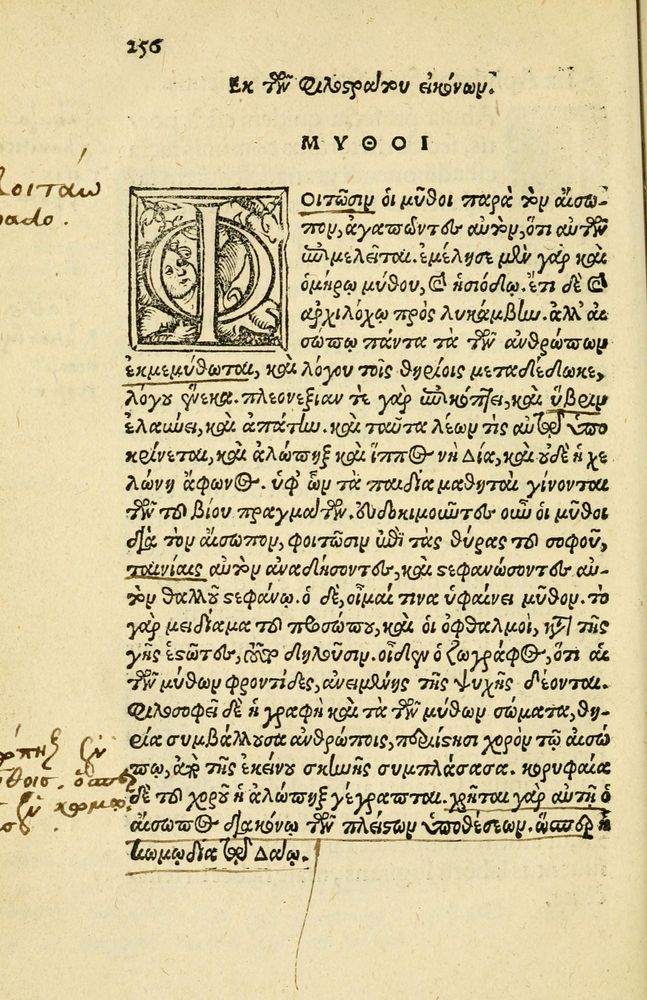 256
Εκ τῶν Φιλοστράτου εἰκόνων.
ΜΥΘΟΙ
Φοιτῶσιν οἱ μῦθοι παρὰ τὸν αἴσω-
πον, ἀγαπῶντες αὐτὸν, ὅτι αὐτῶν
ἐπιμελεῖται. ἐμέλησε μὲν γὰρ καὶ
ὁμήρῳ μύθου, καὶ ἡσιόδῳ. ἔτι δὲ καὶ
αρχιλόχῳ πρὸς λυκάμβην. ἀλλ' αἰ
σώπῳ πάντα τὰ τῶν ἀνθρώπων
ἐκμεμύθωται, καὶ λόγου τοῖς θηρίοις μεταδέδωκε,
λόγου ἕνεκα. πλεονεξίαν τε γὰρ ἐπικόπτει, καὶ ὕβριν
ἐλαύνει, καὶ ἀπάτην. καὶ ταῦτα λέων τὶς αὐτῷ ὑπο
κρίνεται, καὶ ἀλώπηξ καὶ ἵππος νὴ Δία, καὶ οὐδὲ ἡ χε
λώνη ἄφωνος. ὑφ' ὧν τὰ παιδία μαθηταὶ γίνονται
τῶν τοῦ βίου πραγμάτων. εὐδοκιμοῦντες οὖν οἱ μῦθοι
διὰ τὸν αἴσωπον, φοιτῶσιν ἐπὶ τὰς θύρας τοῦ σοφοῦ,
ταινίαις αὐτὸν ἀναδήσοντες, καὶ στεφανώσοντες αὐ-
τὸν θαλλοῦ στεφάνῳ. ὁ δὲ, οἶμαί τινα ὑφαίνει μῦθον. τὸ
γὰρ μειδίαμα τοῦ προσώπου, καὶ οἱ ὀφθαλμοὶ, κατὰ τῆς
γῆς ἑστῶτες, τοῦτο δηλοῦσιν. οἶδεν ὁ ζωγράφος, ὅτι αἱ
τῶν μύθων φροντίδες, ἀνειμένης τῆς ψυχῆς δέονται.
Φιλοσοφεῖ δὲ ἡ γραφὴ καὶ τὰ τῶν μύθων σώματα, θη-
ρία συμβάλλουσα ἀνθρώποις, περιίστησι χορὸν τῷ αἰσώ
πῳ, ἀπὸ τῆς ἐκείνου σκηνῆς συμπλάσασα. κορυφαία
δὲ τοῦ χοροῦ ἡ ἀλώπηξ γέγραπται. χρῆται γὰρ αὐτῇ ὁ
αἴσωπος διακόνῳ τῶν πλείστων ὑποθέσεων. ὥσπερ ἡ
κωμῳδία τῷ Δάῳ.